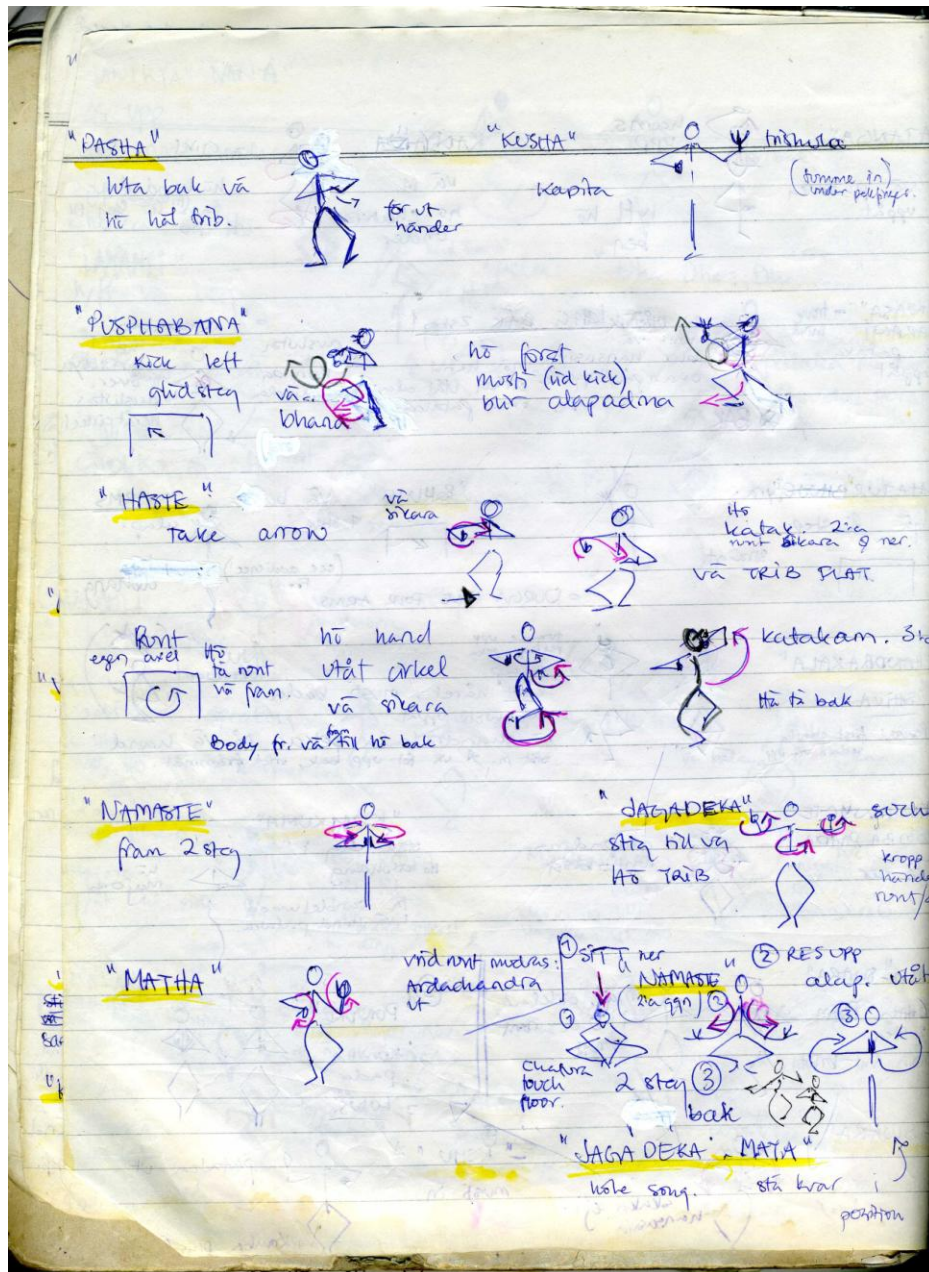 "PASHA"
luta bak vä
hö häl trib.
för ut
händer
"KUSHA"
Kapita
trishula
(tumme in
under pekfinger)
"PUSPHABANA"
Kick left
glidsteg
vä
bhana
hö först
musti (vid kick)
blir alapadma
"HASTE"
Take arrow
vä
sikara
Hö
katak. 2:a
runt sikara ner.
vä TRIB FLAT.
Runt
egen axel
Hö
tå runt
vä fram.
hö hand
utåt cirkel
vä sikara
Body fr. vä fram till hö bak
katakam.
Hö tå bak
"NAMASTE"
fram 2 steg
"JAGADEKA"
stig till vä
HÖ TRIB
kropp
hände
runt/
"MATHA"
vrid runt mudras:
Ardachandra
ut
① SITT ner
NAMASTE
(2:a ggn) ②
② RES UPP
alap. utåt
③
Chatura
touch
floor.
2 steg ③
bak
"JAGADEKA MATA"
hohe song.
stå kvar i
position